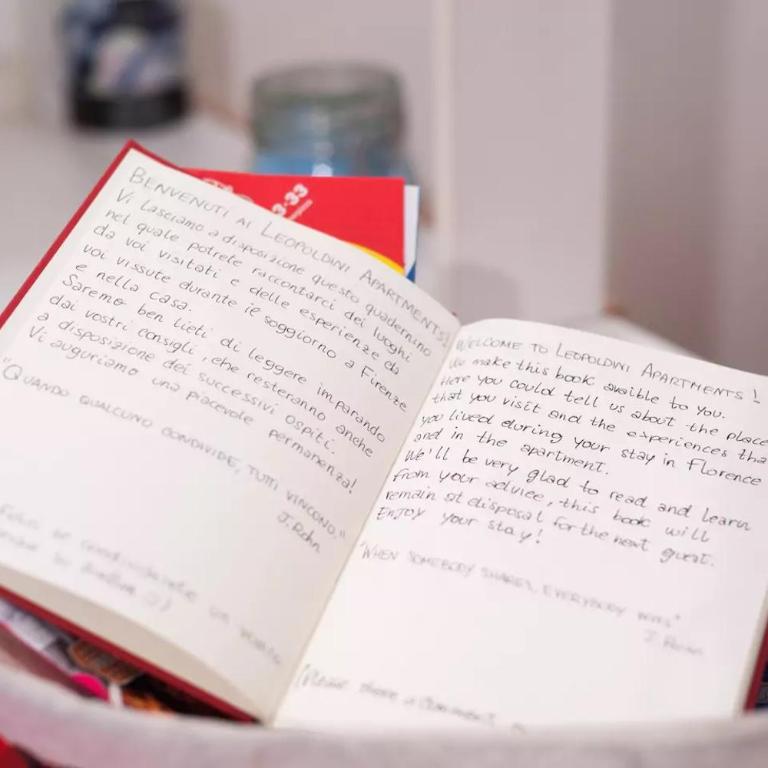 BENVENUTI AI LEOPOLDINI APARTMENTS!
Vi lasciamo a disposizione questo quadernino
nel quale potrete raccontarci dei luoghi
da voi visitati e delle esperienze da
voi vissute durante il soggiorno a Firenze
e nella casa.
Saremo ben lieti di leggere imparando
dai vostri consigli, che resteranno anche
a disposizione dei successivi ospiti.
Vi auguriamo una piacevole permanenza!
"QUANDO QUALCUNO CONDIVIDE, TUTTI VINCONO."
J. Rohn
3-33
WELCOME TO LEOPOLDINI APARTMENTS!
We make this book avaible to you.
Here you could tell us about the place
that you visit and the experiences tha
you lived during your stay in Florence
and in the apartment.
We'll be very glad to read and learn
from your advice, this book will
remain at disposal for the next guest.
ENJOY your stay!
"WHEN SOMEBODY SHARES, EVERYBODY WINS"
J. Rohn
(Please share a comment